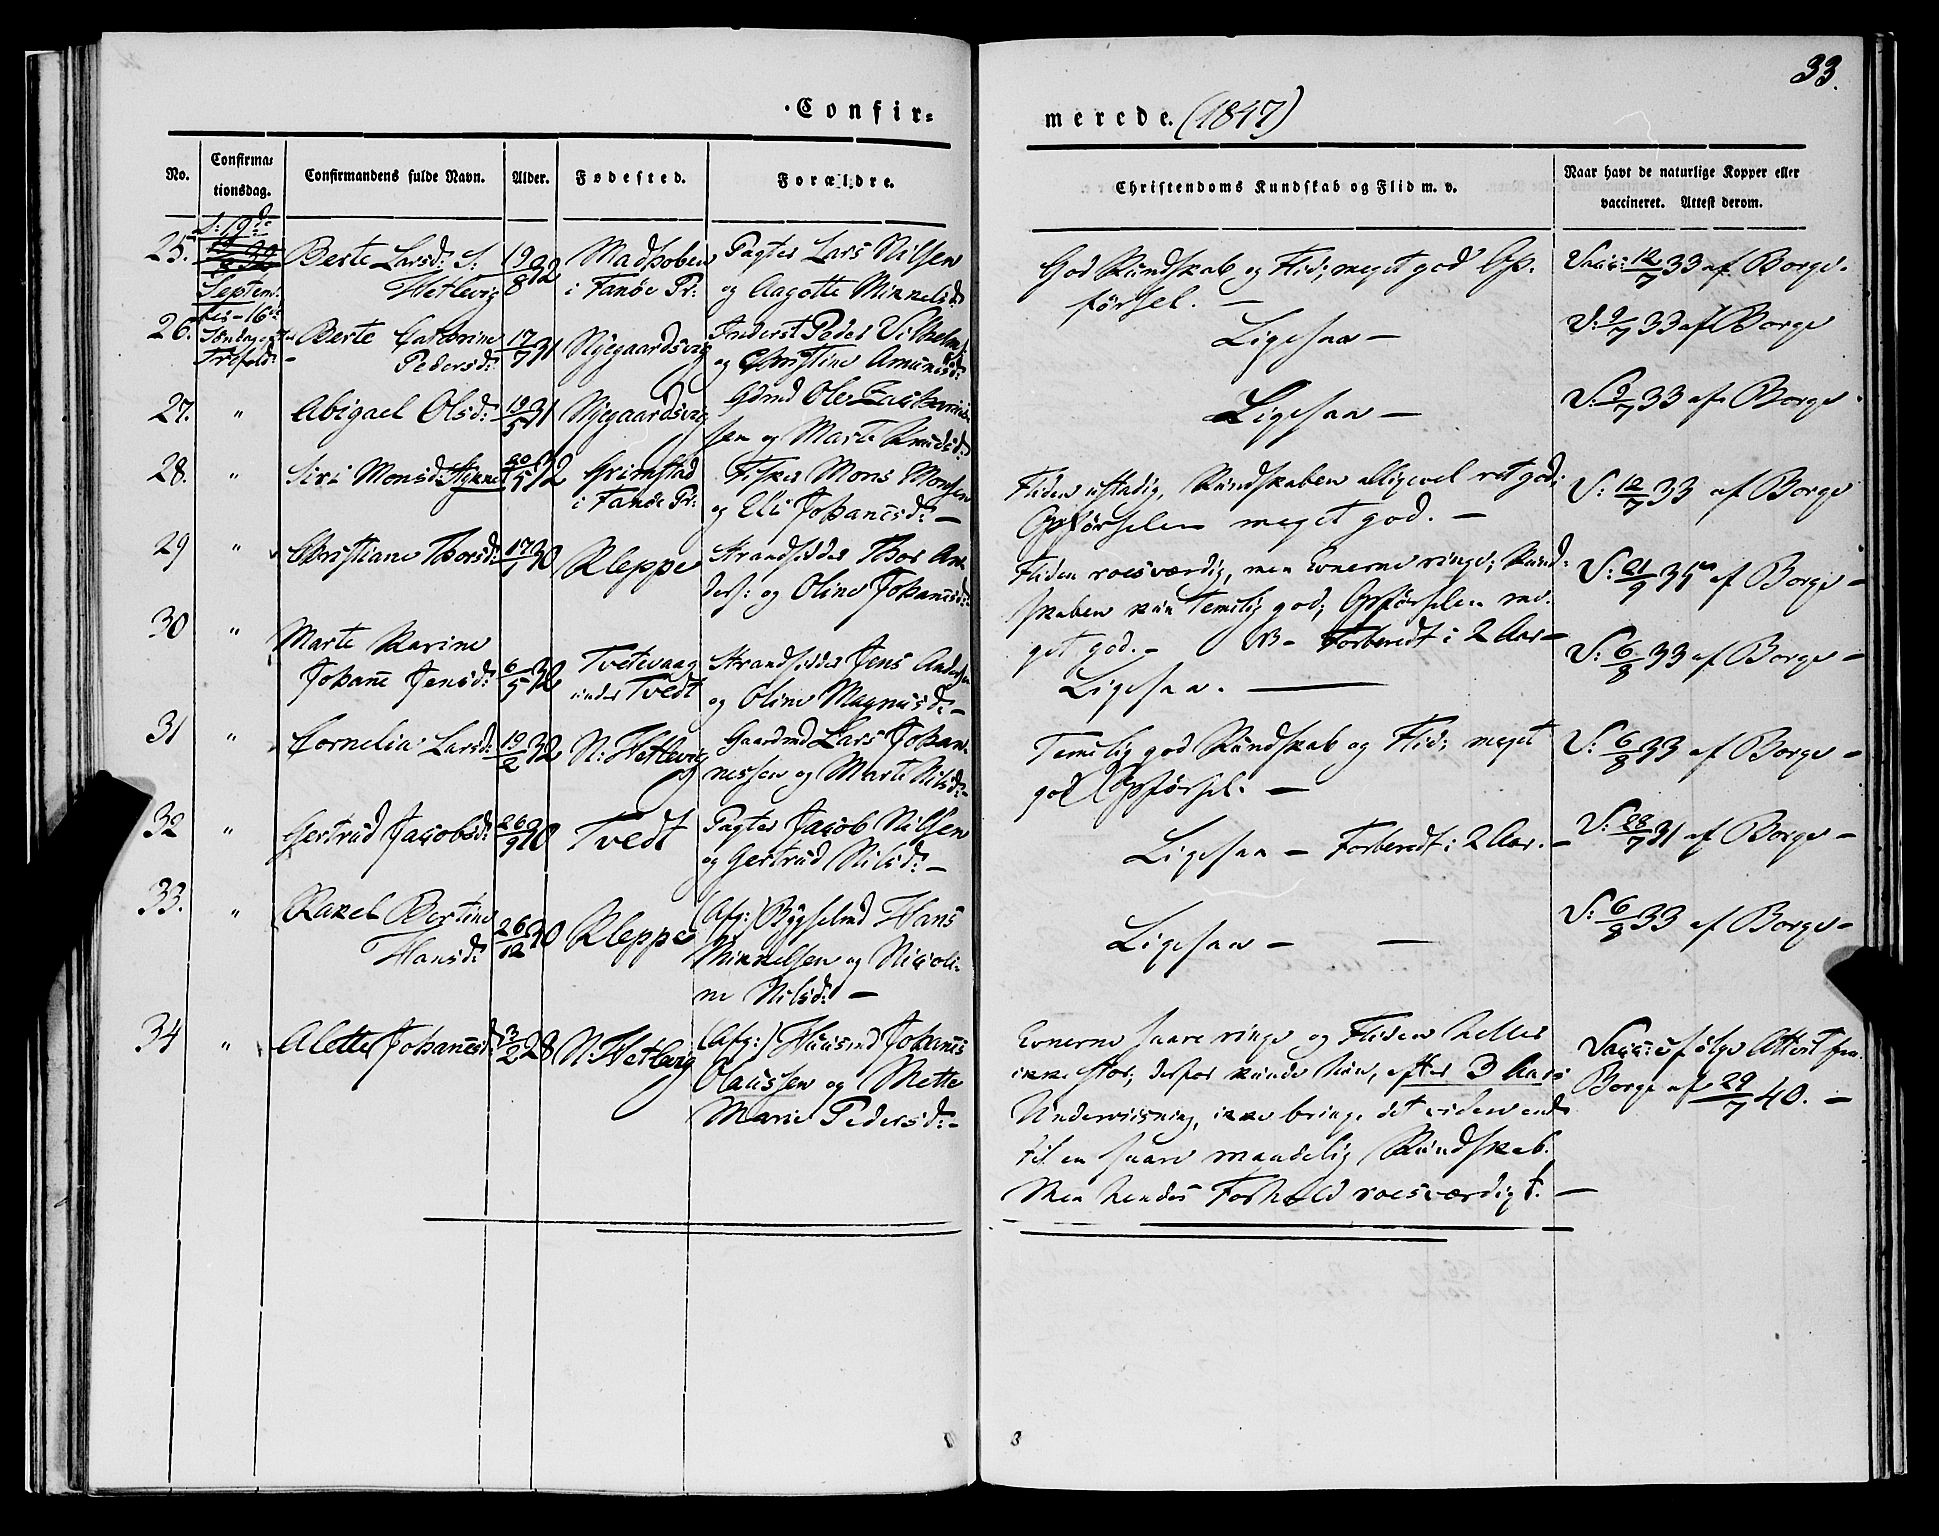 33.
Confir=
merede. (1847)
No.
Confirma=
tionsdag.
Confirmandens fulde Navn.
Alder.
Fødested.
Forældre.
Christendoms Kundskab og Flid m. v.
Naar havt de naturlige Kopper eller
vaccineret. Attest derom.
d: 19de
Septem.
16
Søndag
Trefold:
25. Berte Larsd: S: 19/8 32 Madhoben Pagter Lars Nilsen
Hetlevig i Fanøe Pr: og Aagotte Mikkelsd:
God Kundskab og Flid; meget god Op-
førsel. —
Vacc: 12/7 33 af Borge.
26. Berte Cathrine 17/7 31 Njegaardsvig Inderst Peder Vilhelms:
Pedersd: og Christine Amundsd:
Ligesaa —
V: 9/7 33 af Borge
27. " Abigael Olsd: 19/5 31 Njegaardsvig Gdmd Ole Zacharia-
sen og Marte Knudsd:
Ligesaa —
V: 9/7 33 af Borge.
28. " Siri Monsd: 20/5 32 Grimstad Fisker Mons Monsen
i Fanøe Pr: og Eli Johannsd: —
Fliden ustadig, Kundskaben alligevel ret god;
Opførselen meget god. —
V: 12/7 33 af Borge
29 " Christiane Thorsd: 17/1 30 Kleppe Strandsidder Thor An-
ders: og Oline Johannsd:
Fliden roesværdig, men Evnerne ringe; Kund-
skaben kun temelig god; Opførselen me-
get god. — NB — Forberedt i 2 Aar —
V: 21/9 35 af Borge —
30 " Marte Karine
Johane Jensd: 6/5 32 Tvetevaag Strandsidder Jens Andersen
under Tvedt og Oline Magnusd: —
Ligesaa. —
V: 6/8 33 af Borge —
31 " Cornelia Larsd: 19/2 32 N: Hetlevig Gaardmd Lars Johan-
nessen og Marte Nilsd: —
Temelig god Kundskab og Flid; meget
god Opførsel. —
V: 6/8 33 af Borge —
32 " Gertrud Jacobsd: 26/9 30 Tvedt Pagter Jacob Nilsen
og Gertrud Nilsd: —
Ligesaa — Forberedt i 2 Aar. —
V: 28/7 31 af Borge —
33. " Rakel Bertine 26/12 30 Kleppe (Afg:) Bygselmd Hans
Hansd: Mikkelsen og Nicoli-
ne Nilsd: —
Ligesaa — —
V: 6/8 33 af Borge —
34 " Alette Johannsd: 3/2 28 N: Hetlevig (Afg:) Huusmd Johannes
Olaussen og Mette
Marie Pedersd: —
Evnerne saare ringe og Fliden heller
ikke stor; derfor kunde hun, efter 3 Aars
Underviisning, ikke bringe det videre end
til en saare maadelig Kundskab.
Men hendes Forhold roesværdigt. —
Vacc: ifølge Attest fra
Borge af 29/7 40. —
3